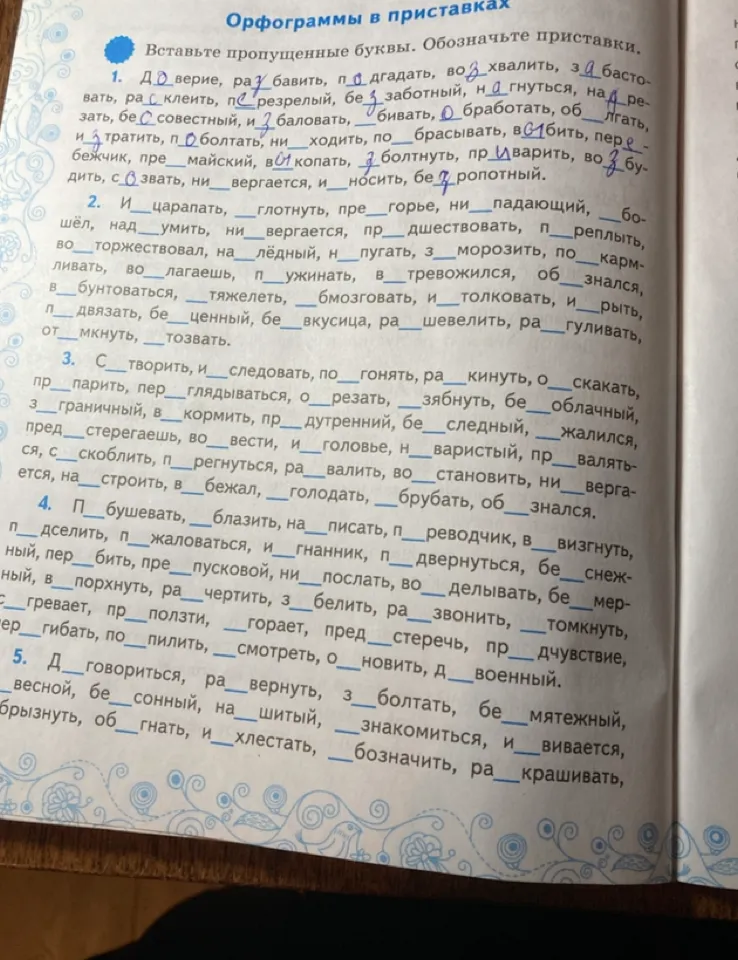 Орфограммы в приставках
Вставьте пропущенные буквы. Обозначьте приставки.
1. Д о верие, ра з бавить, п о дгадать, во з хвалить, з а басто-
вать, ра с клеить, п е резрелый, бе з заботный, н а гнуться, на д ре-
зать, бе с совестный, и з баловать, __бивать, о бработать, об__лгать,
и з тратить, п о болтать, ни__ходить, по__брасывать, в зы бить, пер е -
бежчик, пре__майский, в зы копать, з болтнуть, пр и варить, во з бу-
дить, с о звать, ни__вергается, и__носить, бе з ропотный.
2. И__царапать, __глотнуть, пре__горье, ни__падающий, __бо-
шёл, над__умить, ни__вергается, пр__дшествовать, п__реплыть,
во__торжествовал, на__лёдный, н__пугать, з__морозить, по__карм-
ливать, во__лагаешь, п__ужинать, в__тревожился, об__знался,
в__бунтоваться, __тяжелеть, __бмозговать, и__толковать, и__рыть,
п__двязать, бе__ценный, бе__вкусица, ра__шевелить, ра__гуливать,
от__мкнуть, __тозвать.
3. С__творить, и__следовать, по__гонять, ра__кинуть, о__скакать,
пр__парить, пер__глядываться, о__резать, __зябнуть, бе__облачный,
з__граничный, в__кормить, пр__дутренний, бе__следный, __жалился,
пред__стерегаешь, во__вести, и__головье, н__варистый, пр__валять-
ся, с__скоблить, п__регнуться, ра__валить, во__становить, ни__верга-
ется, на__строить, в__бежал, __голодать, __брубать, об__знался.
4. П__бушевать, __блазить, на__писать, п__реводчик, в__визгнуть,
п__дселить, п__жаловаться, и__гнанник, п__двернуться, бе__снеж-
ный, пер__бить, пре__пусковой, ни__послать, во__делывать, бе__мер-
ный, в__порхнуть, ра__чертить, з__белить, ра__звонить, __томкнуть,
с__гревает, пр__ползти, __горает, пред__стеречь, пр__дчувствие,
пер__гибать, по__пилить, __смотреть, о__новить, д__военный.
5. Д__говориться, ра__вернуть, з__болтать, бе__мятежный,
__весной, бе__сонный, на__шитый, __знакомиться, и__вивается,
брызнуть, об__гнать, и__хлестать, __бозначить, ра__крашивать,